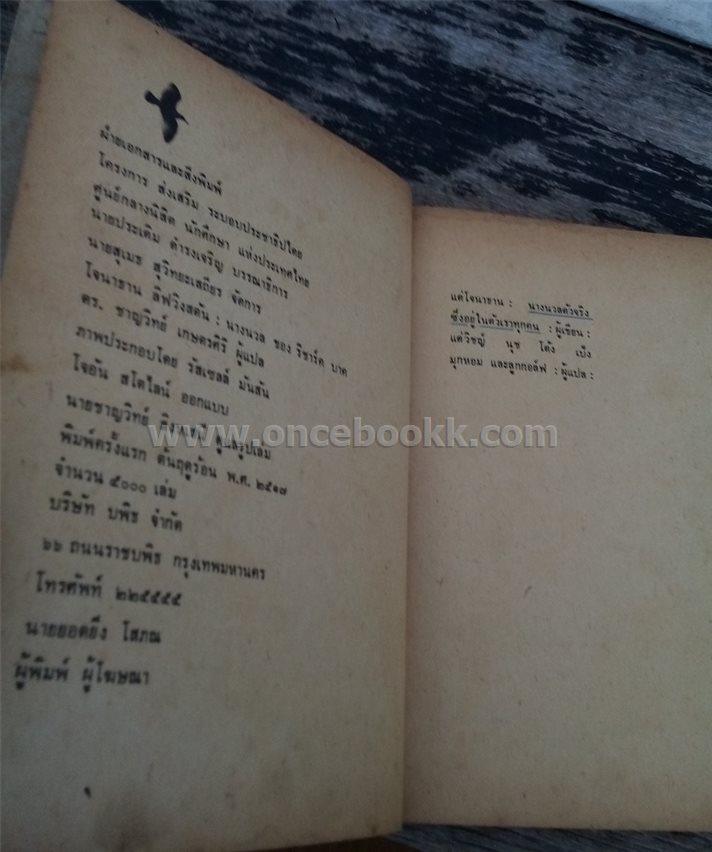 ฝ่ายเอกสารและสิ่งพิมพ์
โครงการ ส่งเสริม ระบอบประชาธิปไตย
ศูนย์กลางนิสิต นักศึกษา แห่งประเทศไทย
นายประเดิม ดำรงเจริญ บรรณาธิการ
นายสุเมธ สุวิทยะเสถียร จัดการ
โจนาธาน ลิฟวิงสตัน : นางนวล ของ ริชาร์ด บาค
ดร. ชาญวิทย์ เกษตรศิริ ผู้แปล
ภาพประกอบโดย รัสเซลล์ มันสัน
โจอัน สโตไลน์ ออกแบบ
นายชาญวิทย์ ดูแลรูปเล่ม
พิมพ์ครั้งแรก ต้นฤดูร้อน พ.ศ. ๒๕๑๗
จำนวน ๕๐๐๐ เล่ม
บริษัท บพิธ จำกัด
๖๖ ถนนราชบพิธ กรุงเทพมหานคร
โทรศัพท์ ๒๒๕๕๕๕
นายยอดยิ่ง โสภณ
ผู้พิมพ์ ผู้โฆษณา
แด่โจนาธาน : นางนวลตัวจริง
ซึ่งอยู่ในตัวเราทุกคน : ผู้เขียน :
แด่วิชญ์ นุช โต้ง เบ้ง
มุกหอม และลูกกอล์ฟ : ผู้แปล :
www.oncebookk.com